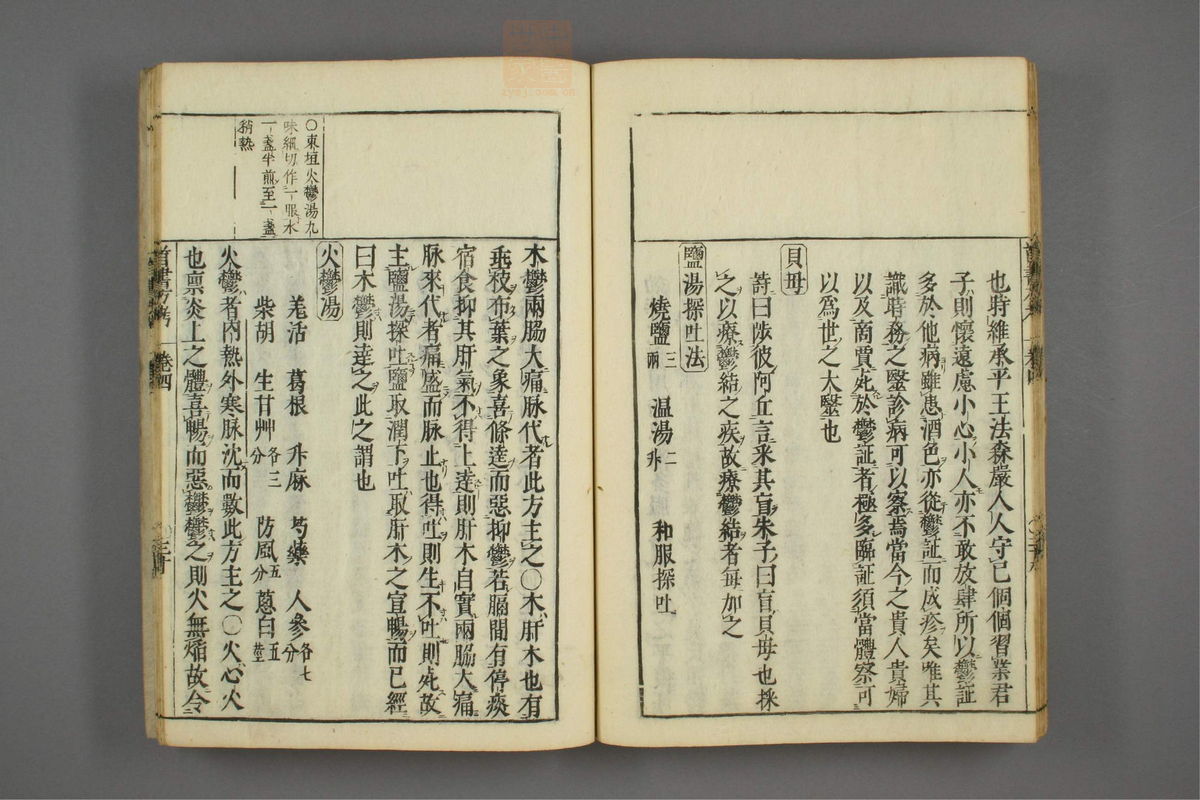 也時維承平王法森嚴人人守己個個習業君
子則懷遠慮小心小人亦不敢放肆所以鬱証
多於他病雖患酒色亦從鬱証而成疹矣唯其
識時務之毉診病可以察焉當今之貴人貴婦
以及商賈死於鬱証者極多臨証須當體察可
以為世之大毉也
貝母
詩曰陟彼阿丘言采其蝱朱子曰蝱貝母也採
之以療鬱結之疾故療鬱結者毎加之
鹽湯探吐法
燒鹽三兩 温湯二升 和服探吐
○東垣火鬱湯九
味細切作一服水
一盞半煎至一盞
稍熱
木鬱兩脇大痛脉代者此方主之○木肝木也有
垂枝布葉之象喜條達而惡抑鬱若膈間有停痰
宿食抑其肝氣不得上達則肝木自實兩脇大痛
脉來代者痛盛而脉止也得吐則生不吐則死故
主鹽湯探吐鹽取潤下吐取肝木之宣暢而已經
曰木鬱則達之此之謂也
火鬱湯
羌活 葛根 升麻 芍藥 人參各七分
柴胡 生甘艸各三分 防風五分 蔥白五莖
火鬱者內熱外寒脉沈而數此方主之○火心火
也禀炎上之體喜暢而惡鬱鬱之則火無焰故令
卷四